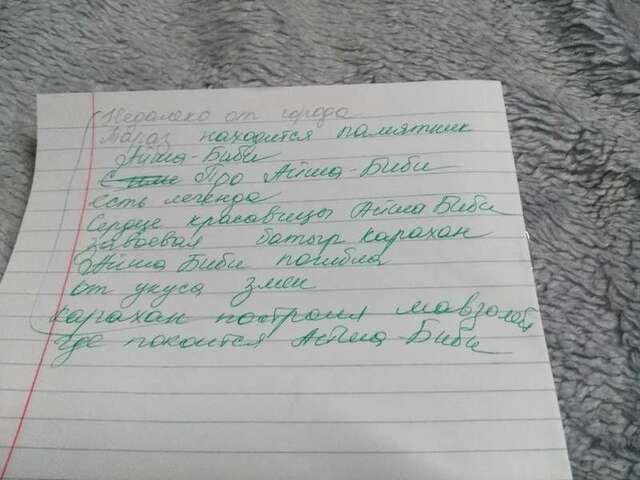 Недалеко от города
Тараз находится памятник
Айша-Биби
Про Айша-Биби
есть легенда
Сердце красавицы Айша Биби
завоевал батыр Карахан
Айша Биби погибла
от укуса змеи
Карахан построил мавзолей
где покоится Айша-Биби